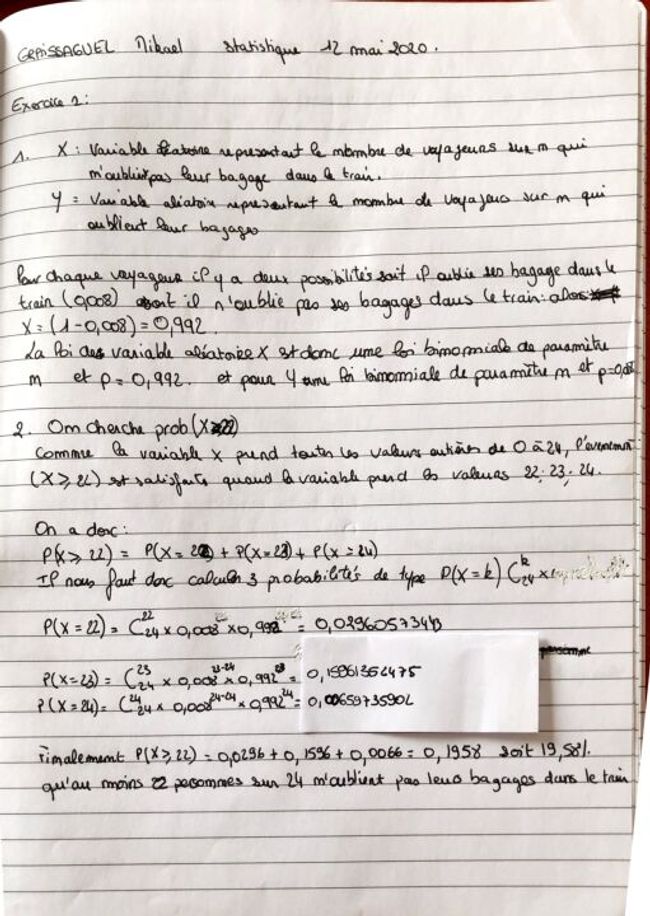 GRAISSAGUEL Mikael Statistique 12 mai 2020.
Exercice 1:
1. X : Variable aléatoire representant le nombre de voyageurs sur n qui
n'oublient pas leur bagage dans le train.
Y = Variable aléatoire representant le nombre de voyageurs sur n qui
oublient leur bagages
Pour chaque voyageur il y a deux possibilités soit il oublie ses bagage dans le
train (0,008) soit il n'oublie pas ses bagages dans le train: alors
X = (1-0,008) = 0,992.
La loi des variable aléatoire X est donc une loi binomiale de paramètre
n et p = 0,992. et pour Y une loi binomiale de paramètre n et p=0,008
2. On cherche prob (X≥22)
Comme la variable X prend toutes les valeurs entières de 0 à 24, l'évenement
(X≥22) est satisfaite quand la variable prend les valeurs 22; 23; 24.
On a donc:
P(X≥22) = P(X=22) + P(X=23) + P(X=24)
Il nous faut donc calculer 3 probabilités de type P(X=k) C₂₄ᵏ ×
P(X=22) = C₂₄²² × 0,008 × 0,992 = 0,02960573443
personne
P(X=23) = C₂₄²³ × 0,008²³⁻²⁴ × 0,992²³ = 0,15961352475
P(X=24) = C₂₄²⁴ × 0,008²⁴⁻²⁴ × 0,992²⁴ = 0,00659735902
Finalement P(X≥22) = 0,0296 + 0,1596 + 0,0066 = 0,1958 soit 19,58%.
qu'au moins 22 personnes sur 24 n'oublient pas leurs bagages dans le train